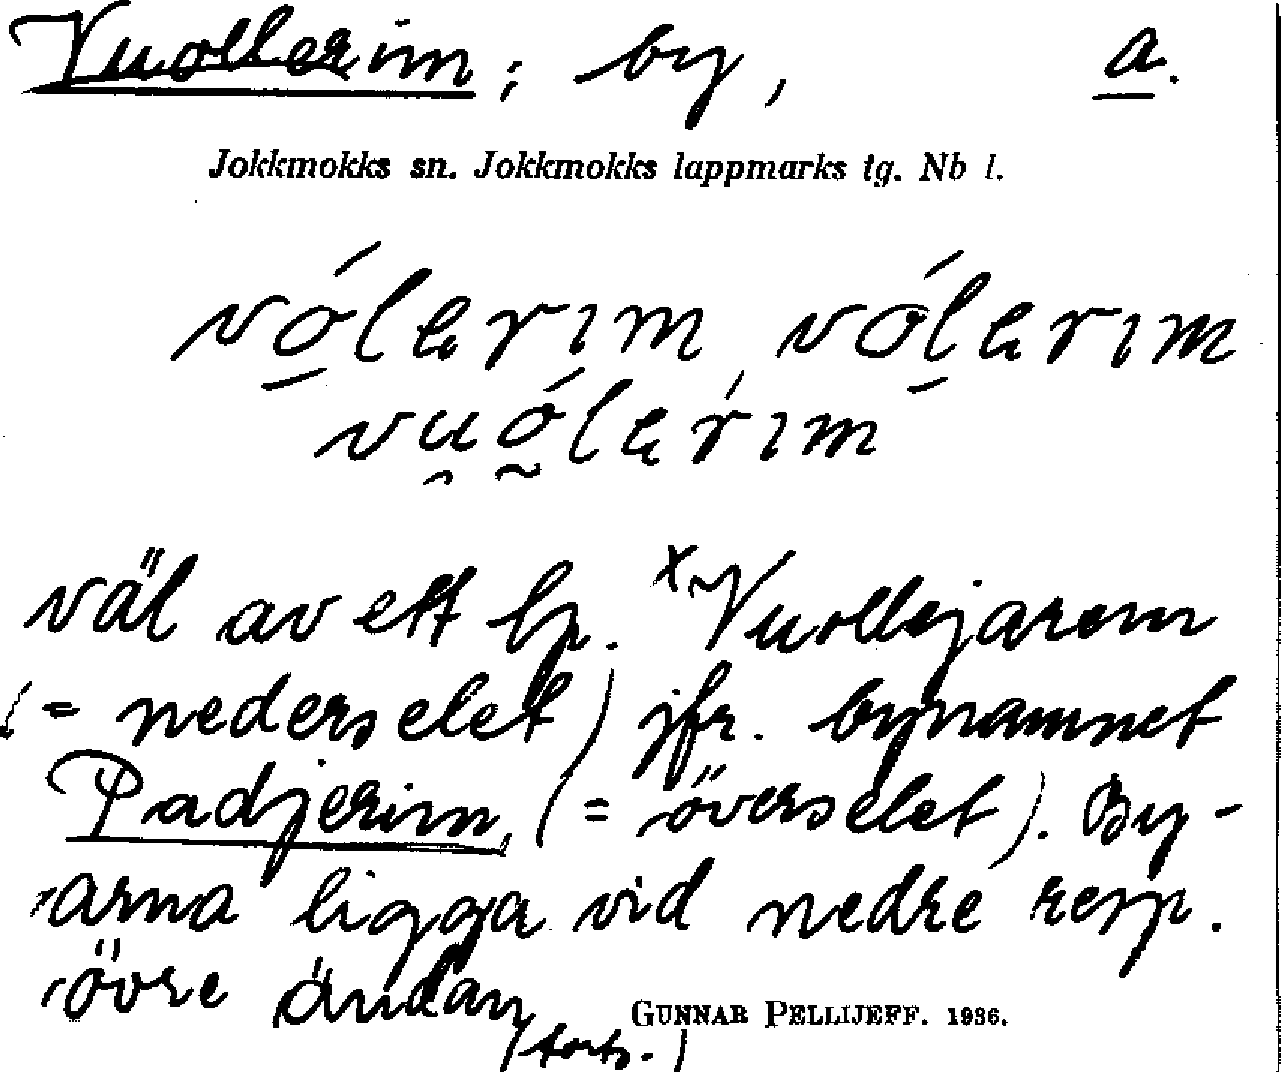 Vuollerim; by, a.
Jokkmokks sn. Jokkmokks lappmarks tg. Nb l.
vó̱lɐrım, vóḻɐrım
vu̯ó̰lɐŕım
väl av ett lp. ˣVuollejarem
(= nederselet) jfr. bynamnet
Padjerim (= överselet). By-
arna ligga vid nedre resp.
övre ändan
GUNNAR PELLIJEFF. 1936.
(forts.)